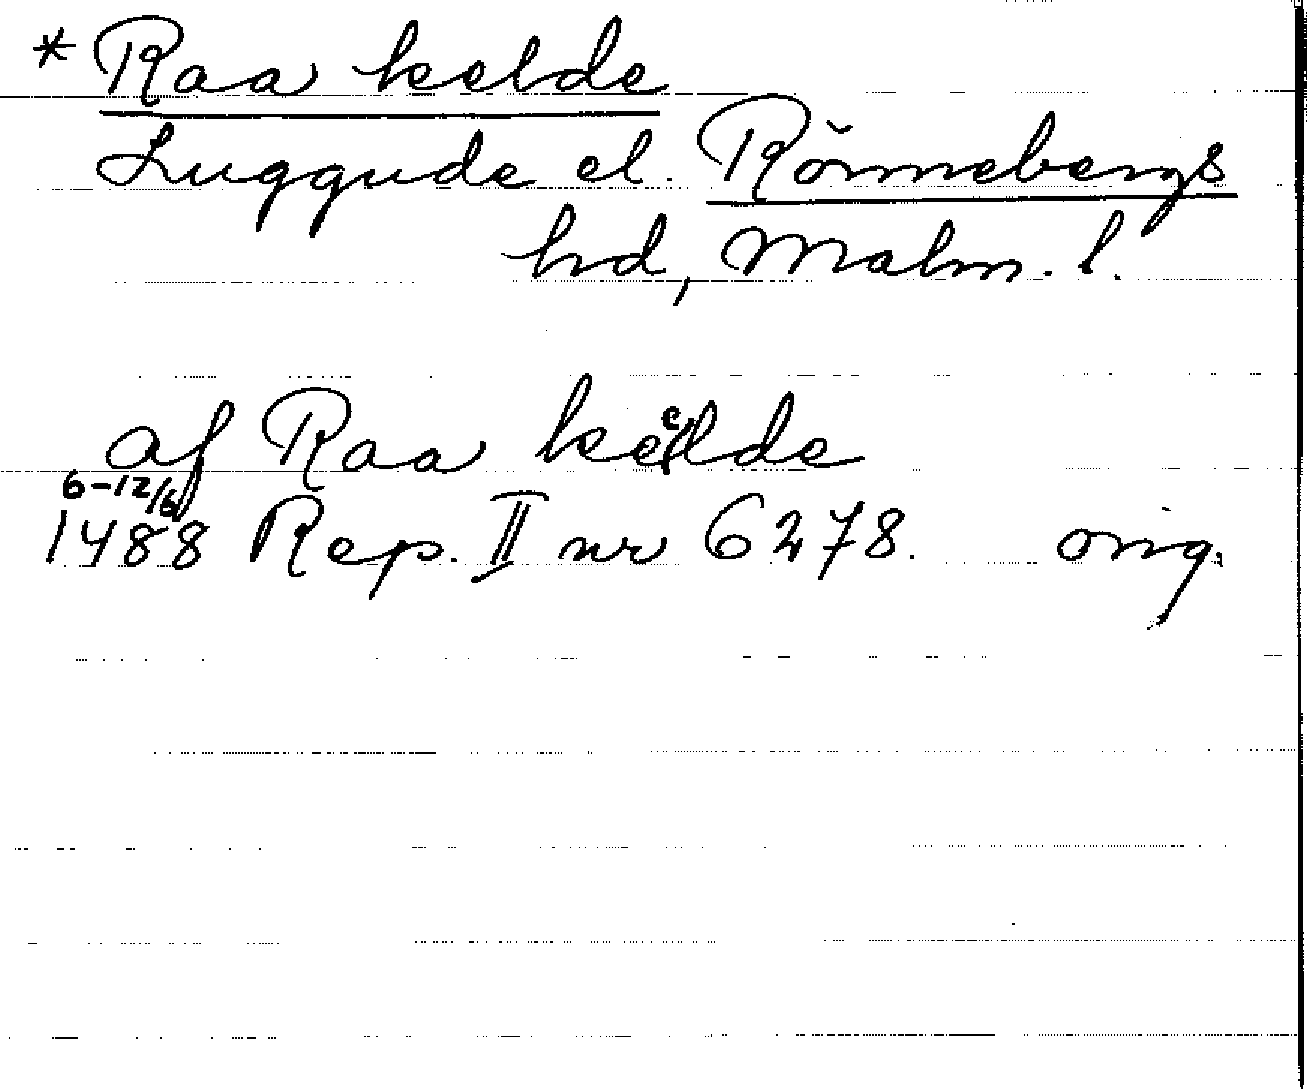 * Raa kelde
Luggude el. Rönnebergs
hd, Malm. l.
af Raa kelde
6-12/6
1488 Rep. II nr 6278. orig.